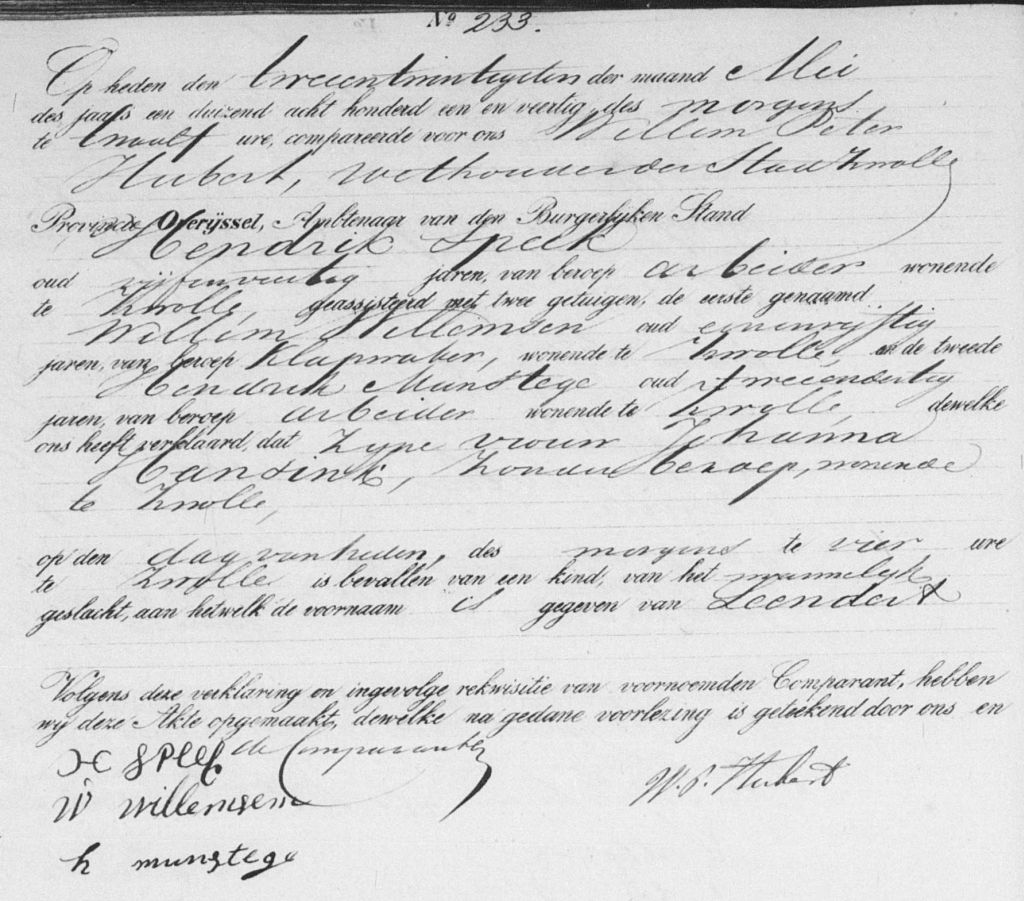 No 233.
Op heden den tweeentwintigsten der maand Mei
des jaars een duizend acht honderd een en veertig, des morgens
te twaalf ure, compareerde voor ons Willem Peter
Hubert, Wethouder der Stad Zwolle
Provincie Overijssel, Ambtenaar van den Burgerlijken Stand
Hendrik Speek
oud vijfenveertig jaren, van beroep arbeider wonende
te Zwolle, geassisteerd met twee getuigen, de eerste genaamd
Willem Willemsen oud eenenvijftig
jaren, van beroep Klapwaker, wonende te Zwolle en de tweede
Hendrik Munstege oud tweeendertig
jaren, van beroep arbeider wonende te Zwolle, dewelke
ons heeft verklaard, dat zyne vrouw Johanna
Hansink, zonder beroep, wonende
te Zwolle,
op den dag van heden, des morgens te vier ure
te Zwolle is bevallen van een kind, van het mannelijk
geslacht, aan hetwelk de voornaam is gegeven van Leendert
Volgens deze verklaring en ingevolge rekwisitie van voornoemden Comparant, hebben
wij deze Akte opgemaakt, dewelke na gedane voorlezing is geteekend door ons en
de Comparanten
H Speek
W. P. Hubert
W Willemsen
h munstege